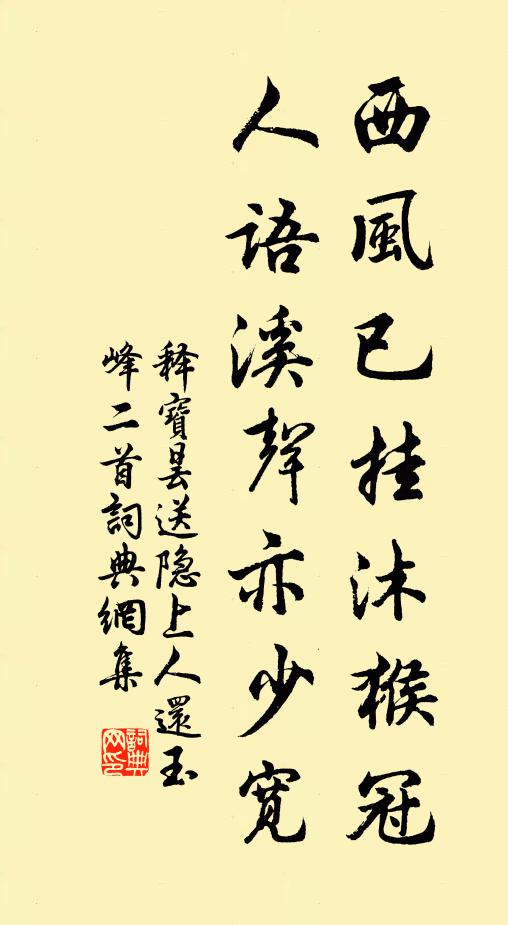 西風已挂沐猴冠
人語溪聲亦少寬
释寶昙送隐上人還玉
峰二首詞典網集
詞典
网印